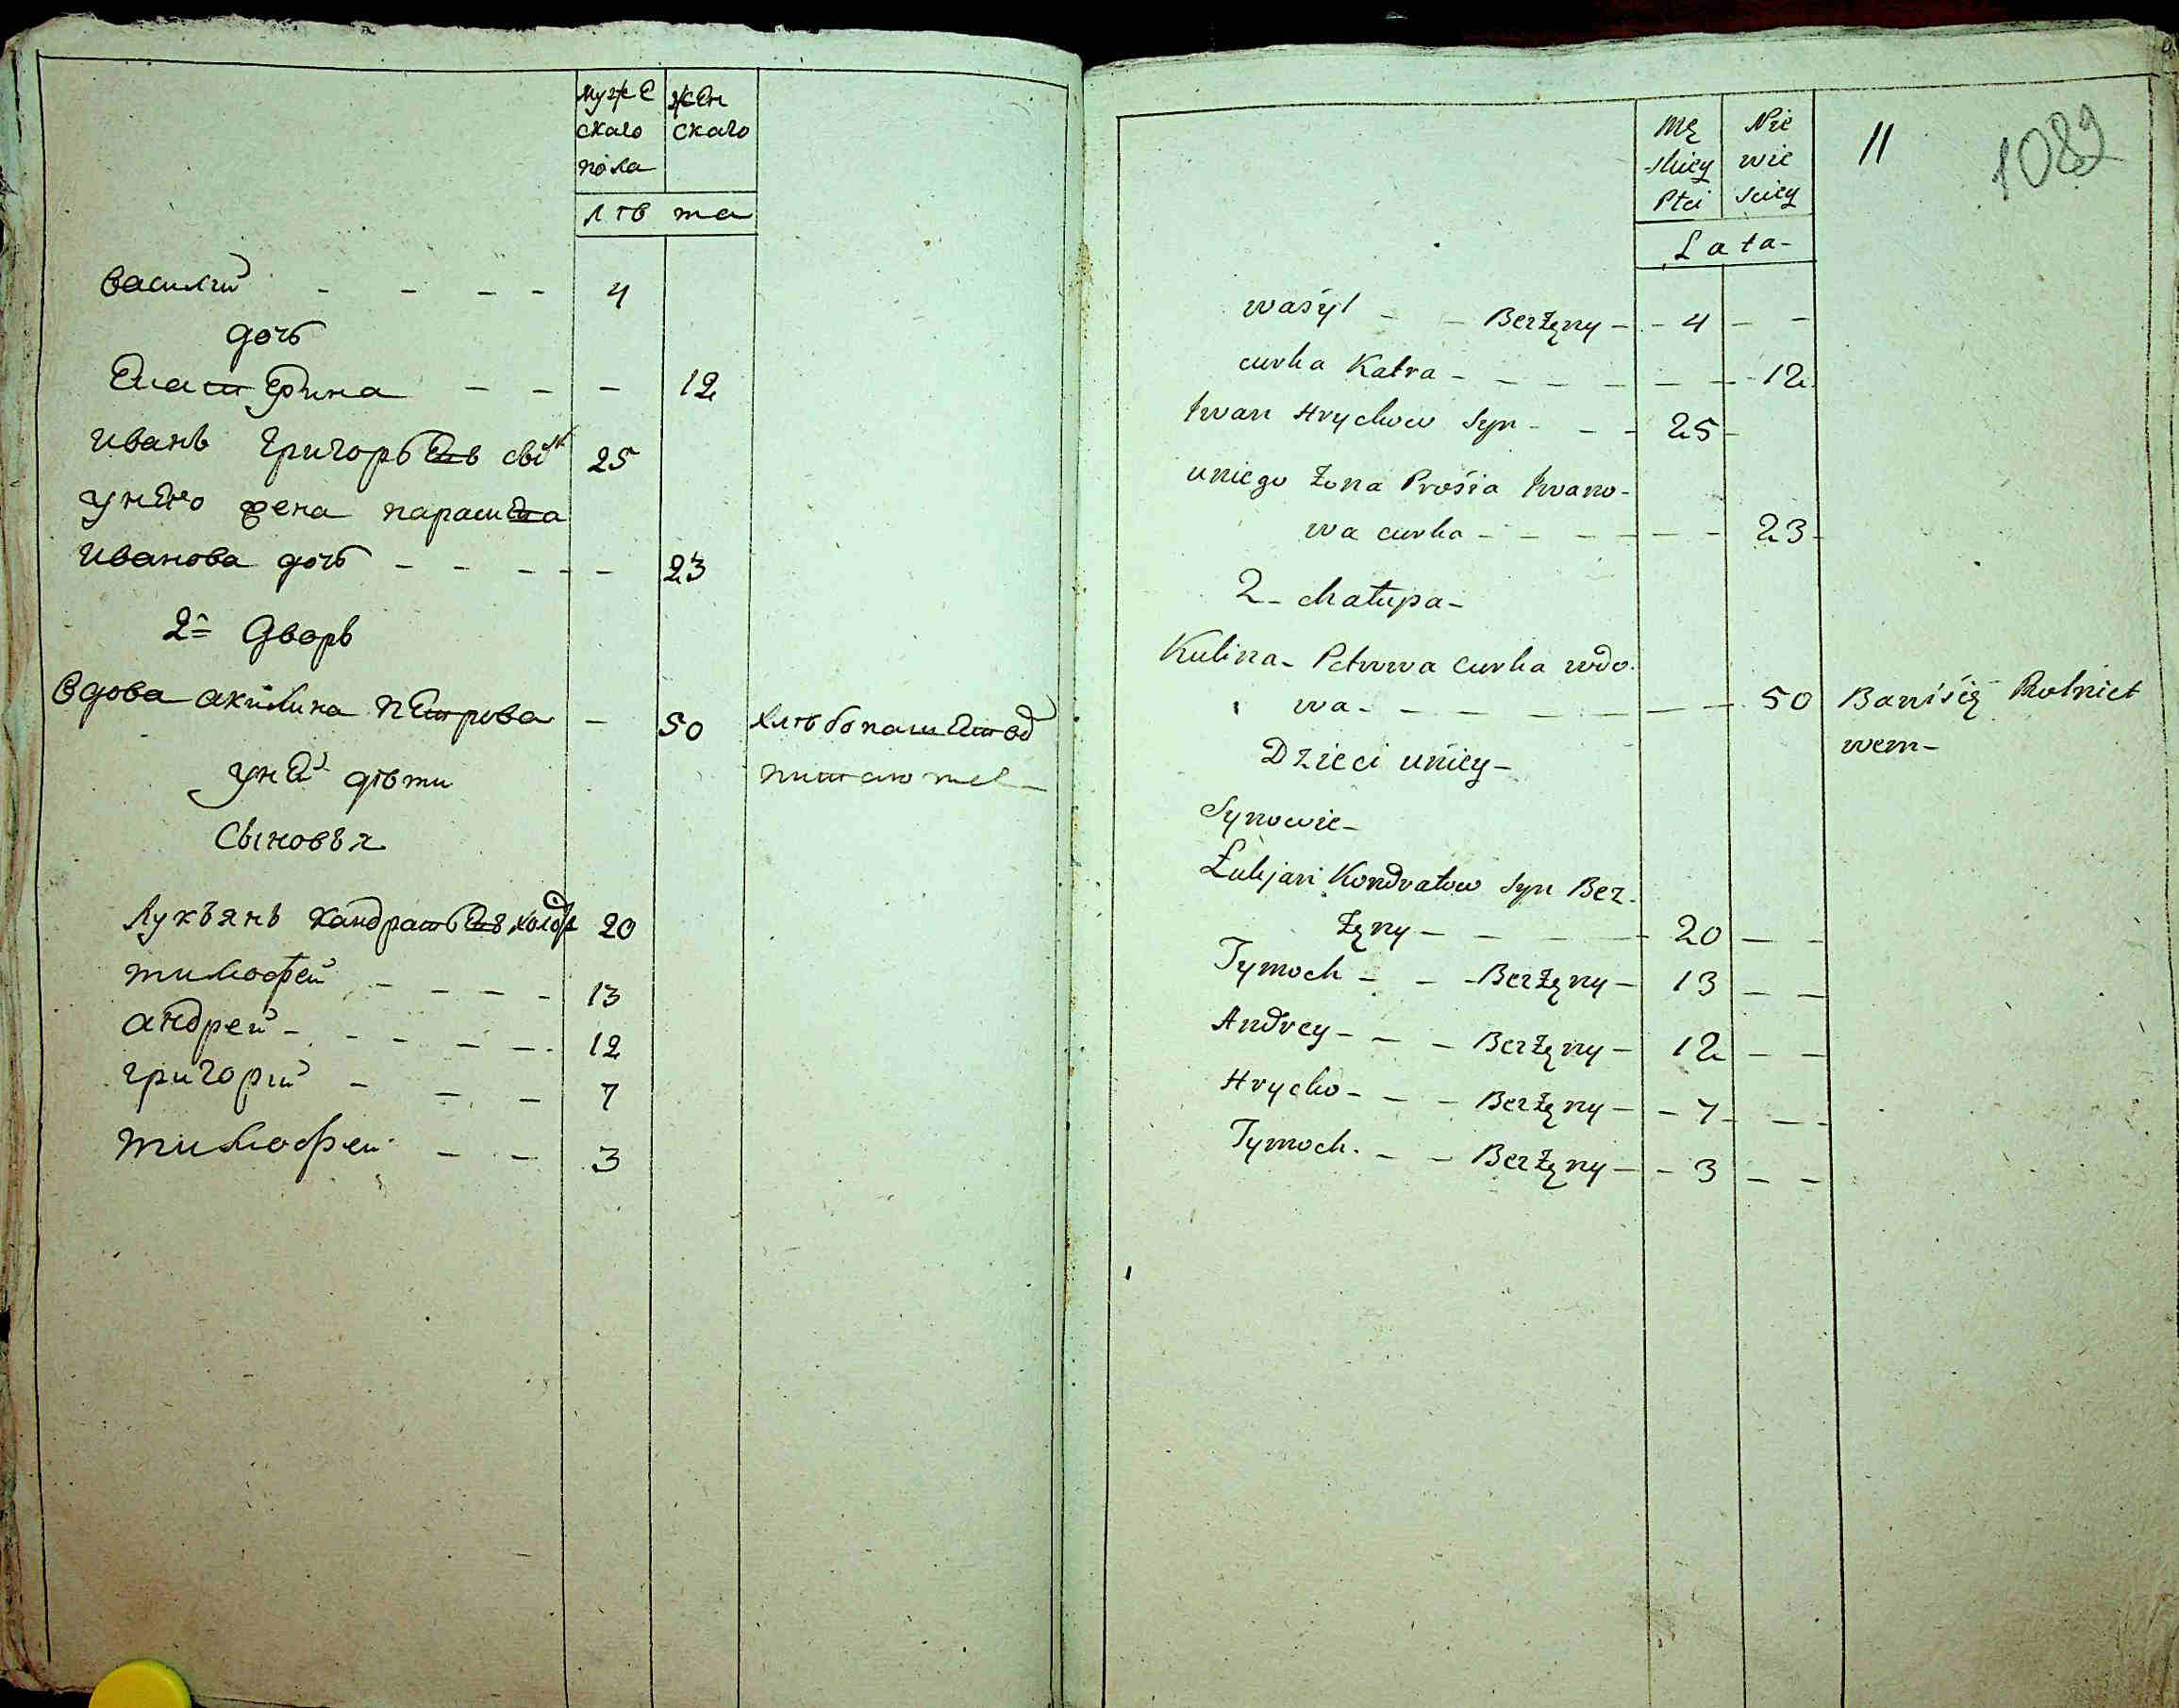 муже
ского
пола
жен
ского
лѣта
василий - - - - 4
дочь
Екатерина - - - 12
иванъ григорьевъ сынъ 25
у него жена парасиева
иванова дочь - - - - - 23
2й дворъ
вдова акилина петрова - 50 хлѣбопашеством
у ней дѣти питаютца
сыновья
лукъянъ кондратьевъ холос 20
тимофей - - - - 13
андрей - - - - - 12
григорий - - - 7
тимофей - - 3
11
1089
Mę
skiey
Płci
Nie
wie
sciey
Lata-
wasyl - - Berżęny - - 4 - -
curka Katra - - - - - - - 12
Iwan Hrychow Syn - - - 25 -
uniego żona Prosia Iwano-
wa curka - - - - - - 23
2 - chałupa -
Kulina - Petrowa curka wdo-
wa - - - - - - - - 50 Bawi się Rolnict
Dzieci uniey - wem -
Synowie -
Łukjan Kondratow Syn Ber-
żęny - - - - 20 - -
Tymoch - - - Berżęny - 13 - -
Andrey - - - Berżęny - 12 - -
Hrycko - - - Berżęny - - 7 - - -
Tymoch. - - Berżęny - - 3 - -